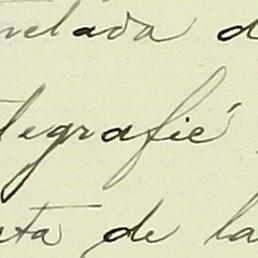 nelada d
legrafié
sta de la